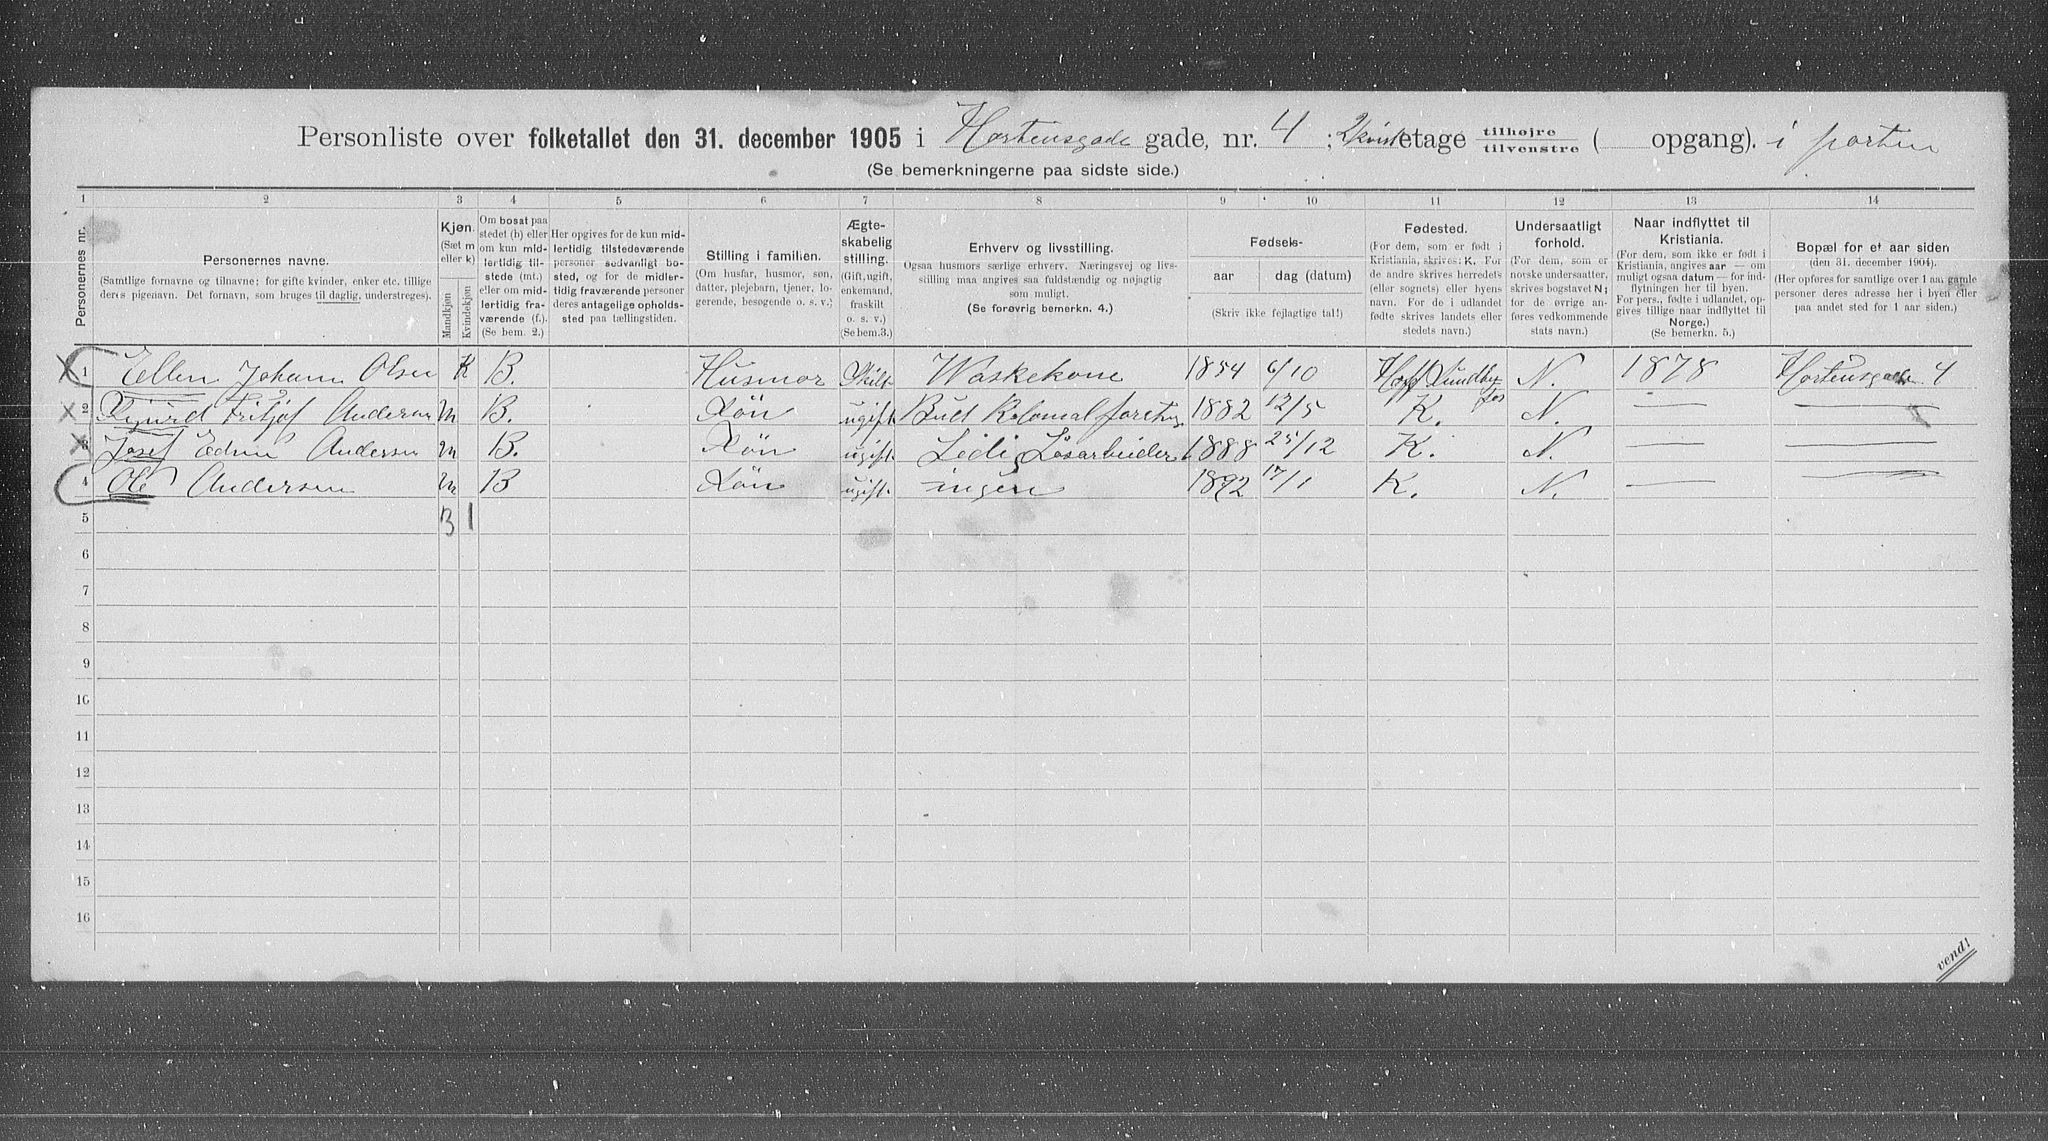 Personliste over folketallet den 31. december 1905 i Hortensgade gade, nr. 4 ; 2 kvist etage tilhøjre tilvenstre ( opgang). i porten
(Se bemerkningerne paa sidste side.)
1 2 3 4 5 6 7 8 9 10 11 12 13 14
Personernes nr.
Personernes navne.
(Samtlige fornavne og tilnavne; for gifte kvinder, enker etc. tillige
deres pigenavn. Det fornavn, som bruges til daglig, understreges).
Kjøn.
(Sæt m
eller k)
Mandkjøn
Kvindekjøn
Om bosat paa
stedet (b) eller
om kun mid-
lertidig til-
stede (mt.)
eller om mid-
lertidig fra-
værende (f.).
(Se bem. 2.)
Her opgives for de kun mid-
lertidig tilstedeværende
personer sedvanligt bo-
sted, og for de midler-
tidig fraværende personer
deres antagelige opholds-
sted paa tællingstiden.
Stilling i familien.
(Om husfar, husmor, søn,
datter, plejebarn, tjener, lo-
gerende, besøgende o. s. v.)
Ægte-
skabelig
stilling.
(Gift, ugift,
enkemand,
fraskilt
o. s. v.)
(Se bem.3.)
Erhverv og livsstilling.
Ogsaa husmors særlige erhverv. Næringsvej og livs-
stilling maa angives saa fuldstændig og nøjagtig
som muligt.
(Se forøvrig bemerkn. 4.)
Fødsels-
aar
dag (datum)
(Skriv ikke fejlagtige tal!)
Fødested.
(For dem, som er født i
Kristiania, skrives: K. For
de andre skrives herredets
(eller sognets) eller byens
navn. For de i udlandet
fødte skrives landets eller
stedets navn.)
Undersaatligt
forhold.
(For dem, som er
norske undersaatter,
skrives bogstavet N;
for de øvrige an-
føres vedkommende
stats navn.)
Naar indflyttet til
Kristiania.
(For dem, som ikke er født i
Kristiania, angives aar — om
muligt ogsaa datum — for ind-
flytningen her til byen.
For pers., fødte i udlandet, op-
gives tillige naar indflyttet til
Norge.)
(Se bemerkn. 5.)
Bopæl for et aar siden
(den 31. december 1904).
(Her opføres for samtlige over 1 aar gamle
personer deres adresse her i byen eller
paa andet sted for 1 aar siden.)
1 Ellen Johanne Olsen K B. Husmor Skilt Waskekone 1854 6/10 Hoff Sundby N. 1878 Hortensgade 4
2 Fritjof Andersen m B. Søn ugift. Bud 1882 12/5 K. N. — —
3 Josef Edvin Andersen m B. Søn ugift. Ledig Løsarbeider 1888 25/12 K. N. — —
4 Ole Andersen m B Søn ugift. ingen 1892 17/1 K. N. — —
5 3 1
6
7
8
9
10
11
12
13
14
15
16
vend!